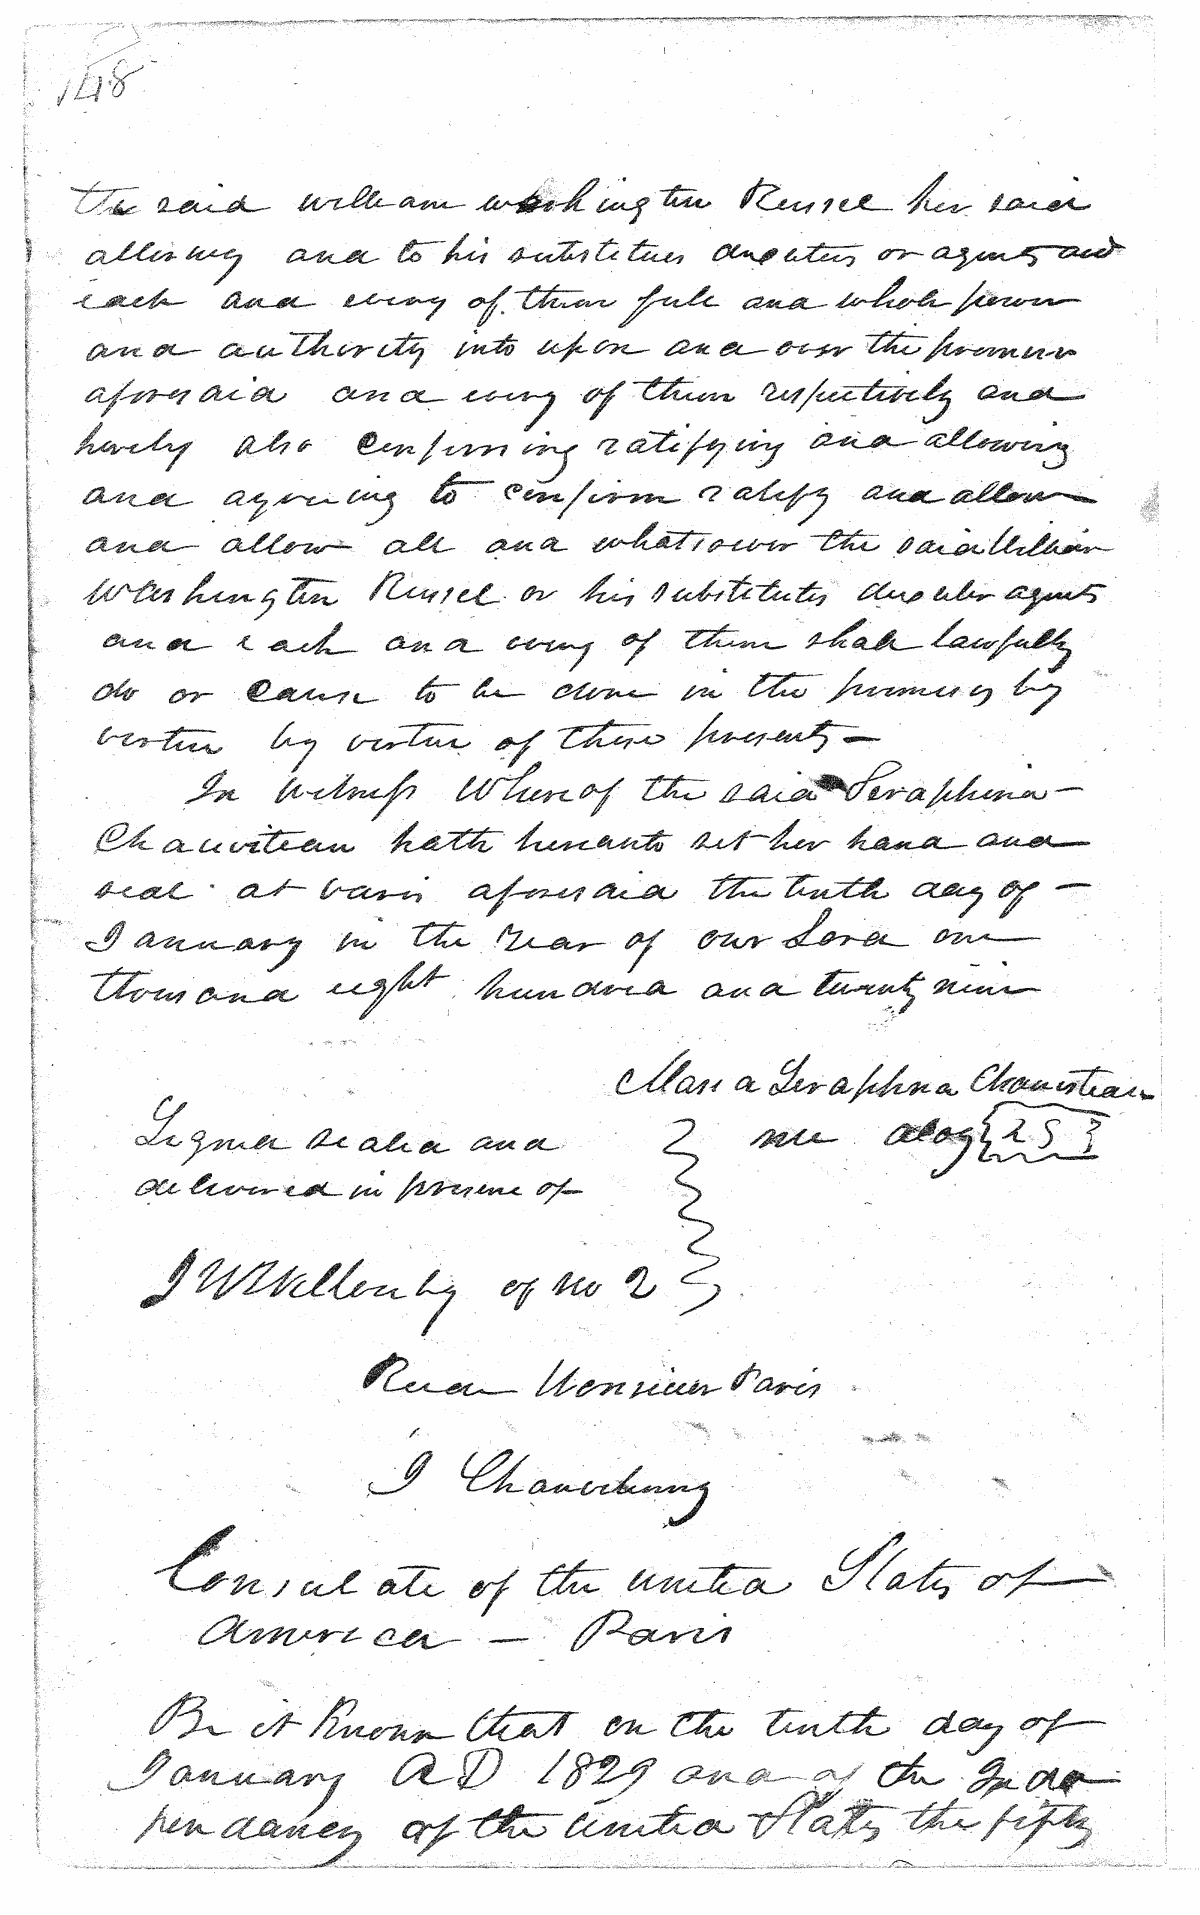 148
The said William Washington Russel her said
attorney and to his substitutes deputies or agents and
each and every of them full and whole power
and authority into upon and over the premises
aforesaid and every of them respectively and
hereby also confirming ratifying and allowing
and agreeing to confirm ratify and allow
and allow all and whatsoever the said William
Washington Russel or his substitutes deputies agents
and each and every of them shall lawfully
do or cause to be done in the premises by
virtue by virtue of these presents —
In Witness Whereof the said Seraphina —
Chauviteau hath hereunto set her hand and
seal at Paris aforesaid the tenth day of —
January in the Year of our Lord one
thousand eight hundred and twenty nine
Maria Seraphina Chauviteau
nee
Signed sealed and
delivered in presence of
of No 2
Rue Monsieur Paris
J
Consulate of the United States of
America — Paris
Be it Known that on the tenth day of
January A D 1829 and of the Inde
pendancy of the United States the fifty